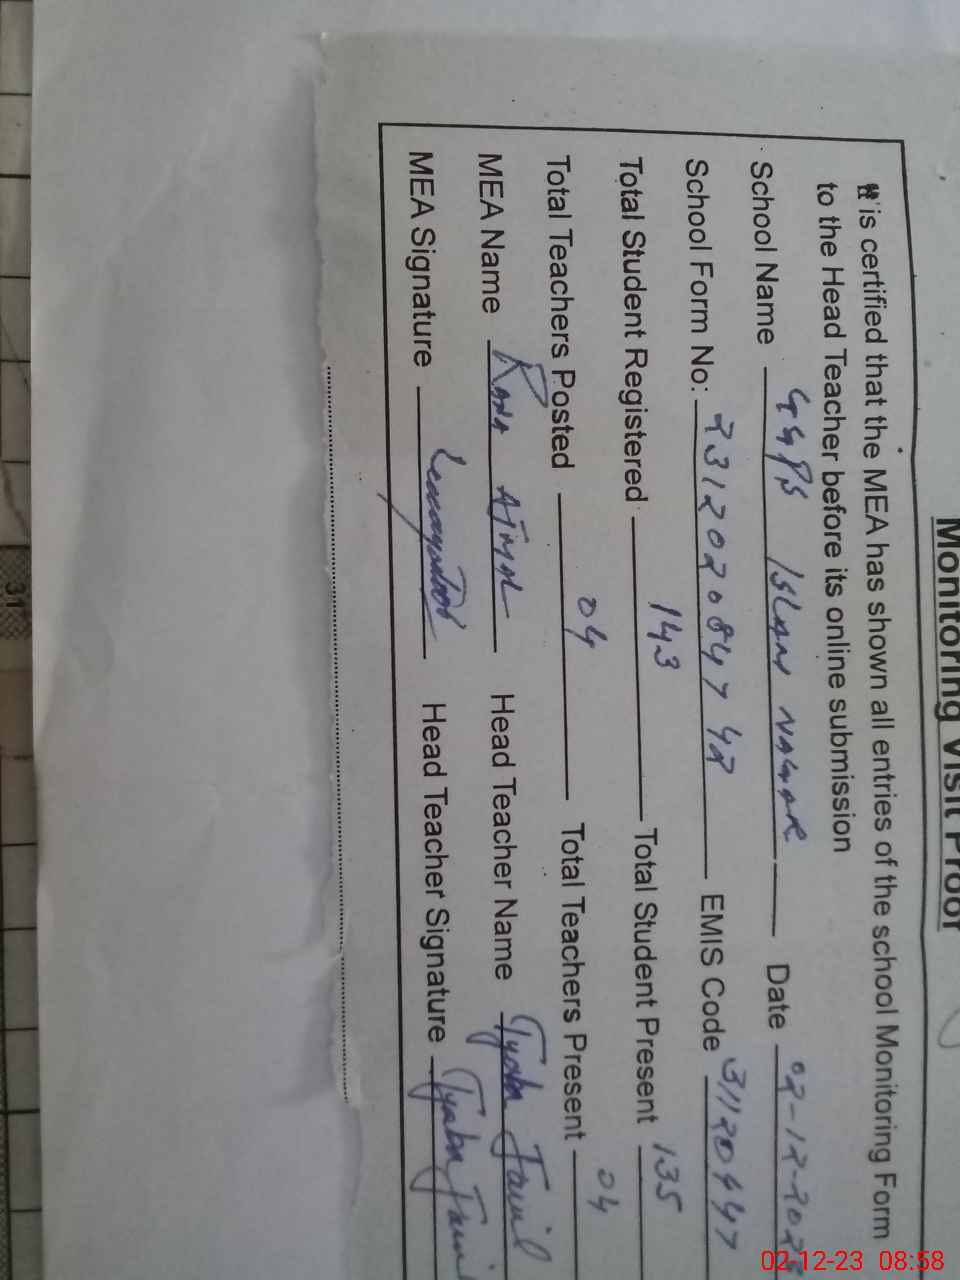 Monitoring Visit Proof
It is certified that the MEA has shown all entries of the school Monitoring Form
to the Head Teacher before its online submission
School Name GGPS ISLAM NAGAR Date 02-12-2023
School Form No: 2312020847 42 EMIS Code 31120447
Total Student Registered 143 Total Student Present 135
Total Teachers Posted 04 Total Teachers Present 04
MEA Name RANA AJMAL Head Teacher Name Tyaba Jamil
MEA Signature Head Teacher Signature Tyaba Jamil
31
02-12-23 08:58